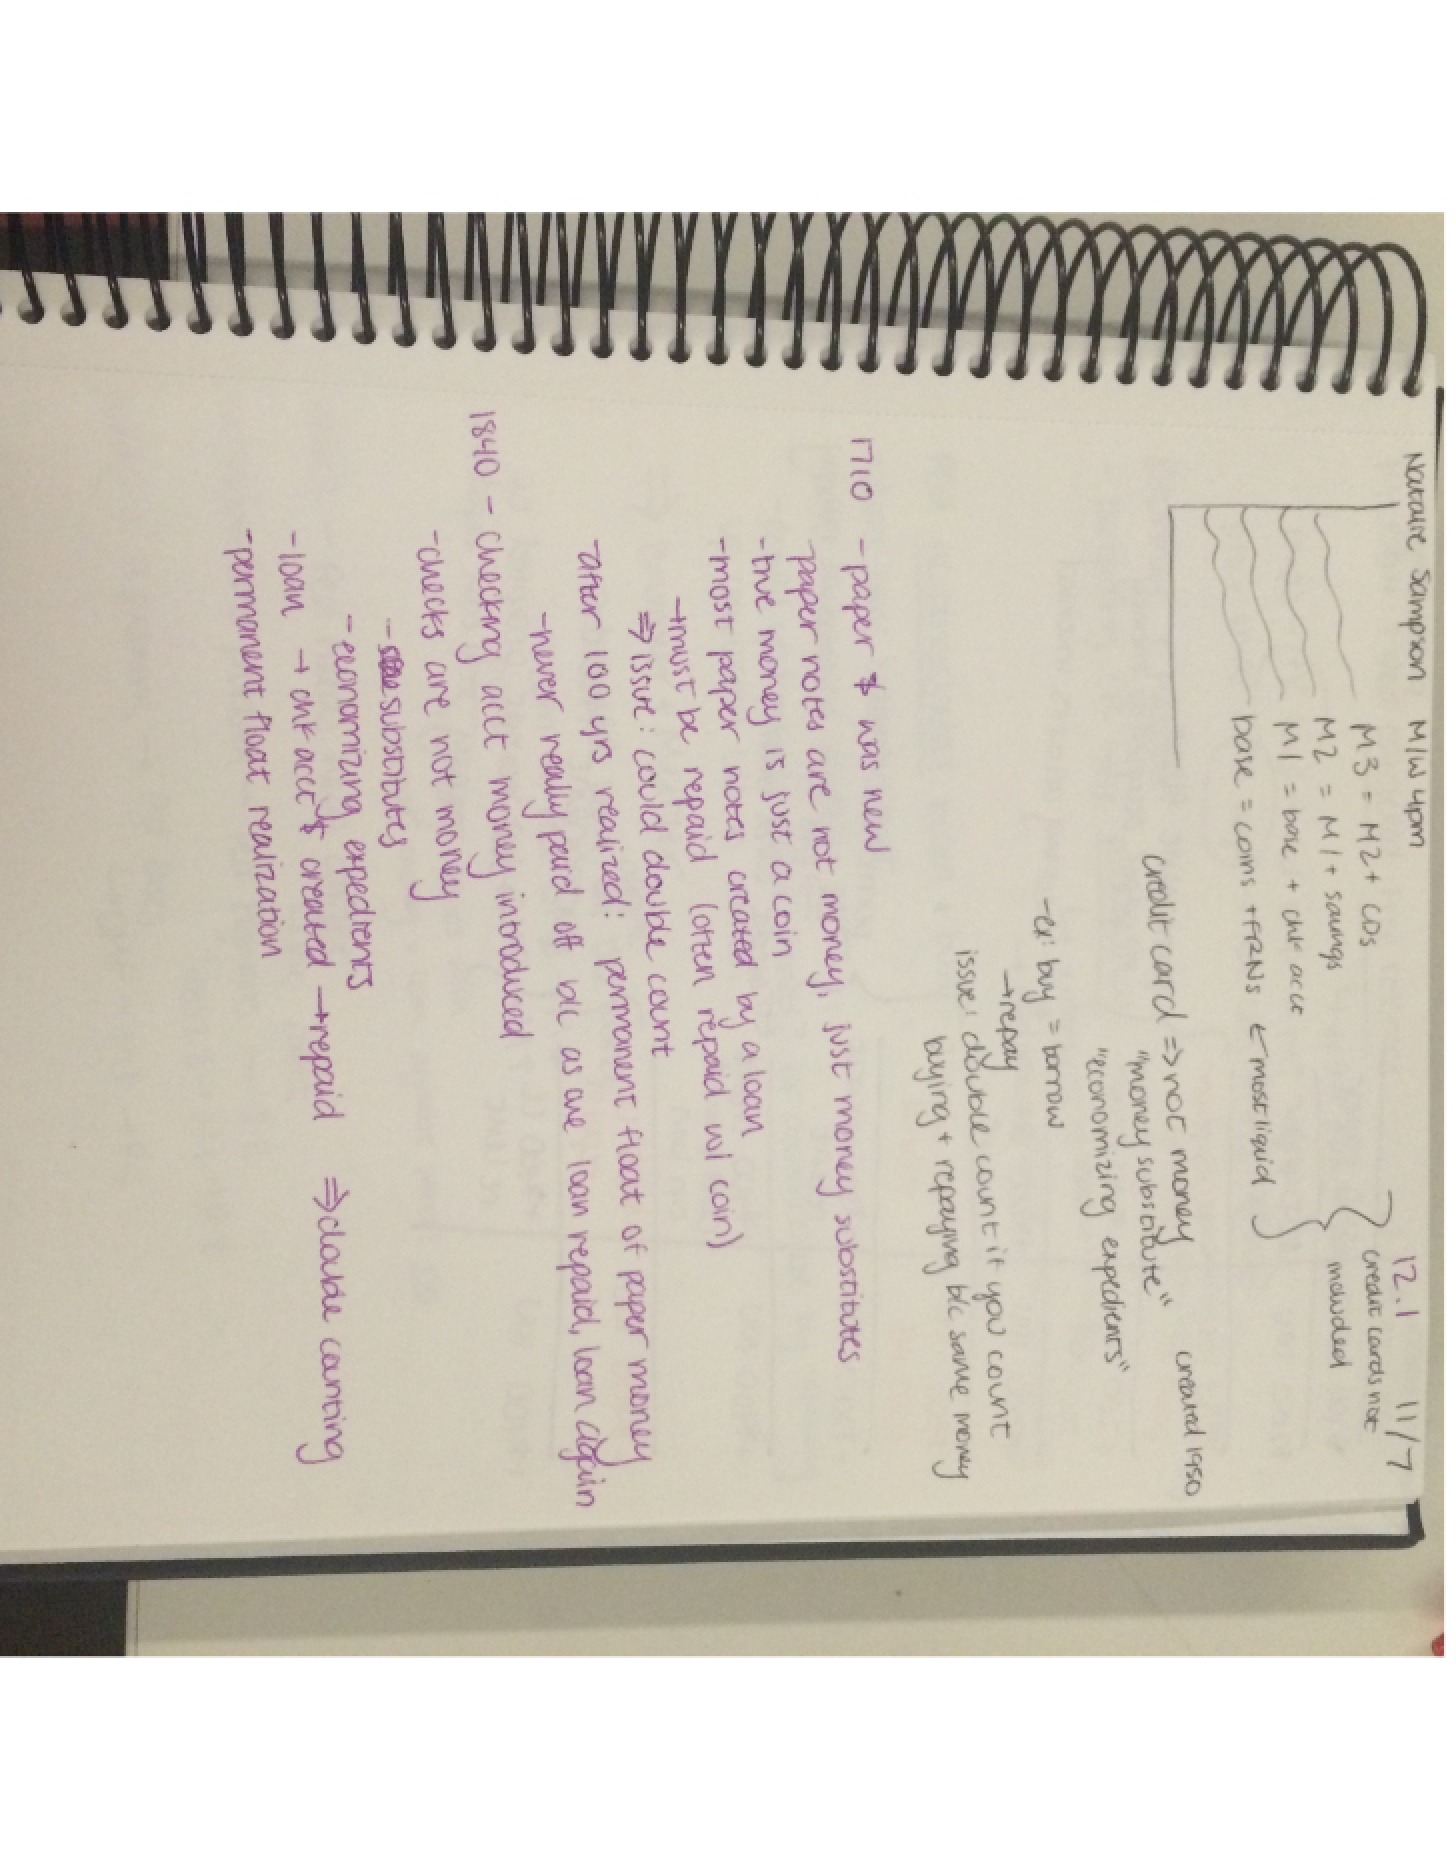 Natalie Sampson M/W 4pm 12.1 11/7
M3 = M2 + CDs
M2 = M1 + savings
M1 = base + chk acct
base = coins + FRNs ← most liquid
credit cards not
included
credit card ⇒ not money created 1950
"money substitute"
"economizing expedients"
-ex: buy = borrow
→repay
issue: double count if you count
buying + repaying b/c same money
1710 - paper $ was new
-paper notes are not money, just money substitutes
-true money is just a coin
-most paper notes created by a loan
→must be repaid (often repaid w/ coin)
⇒ issue: could double count
-after 100 yrs realized: permanent float of paper money
-never really paid off b/c as one loan repaid, loan again
1840 - checking acct money introduced
-checks are not money
- substitutes
- economizing expedients
-loan → chk acct $ created → repaid ⇒ double counting
-permanent float realization